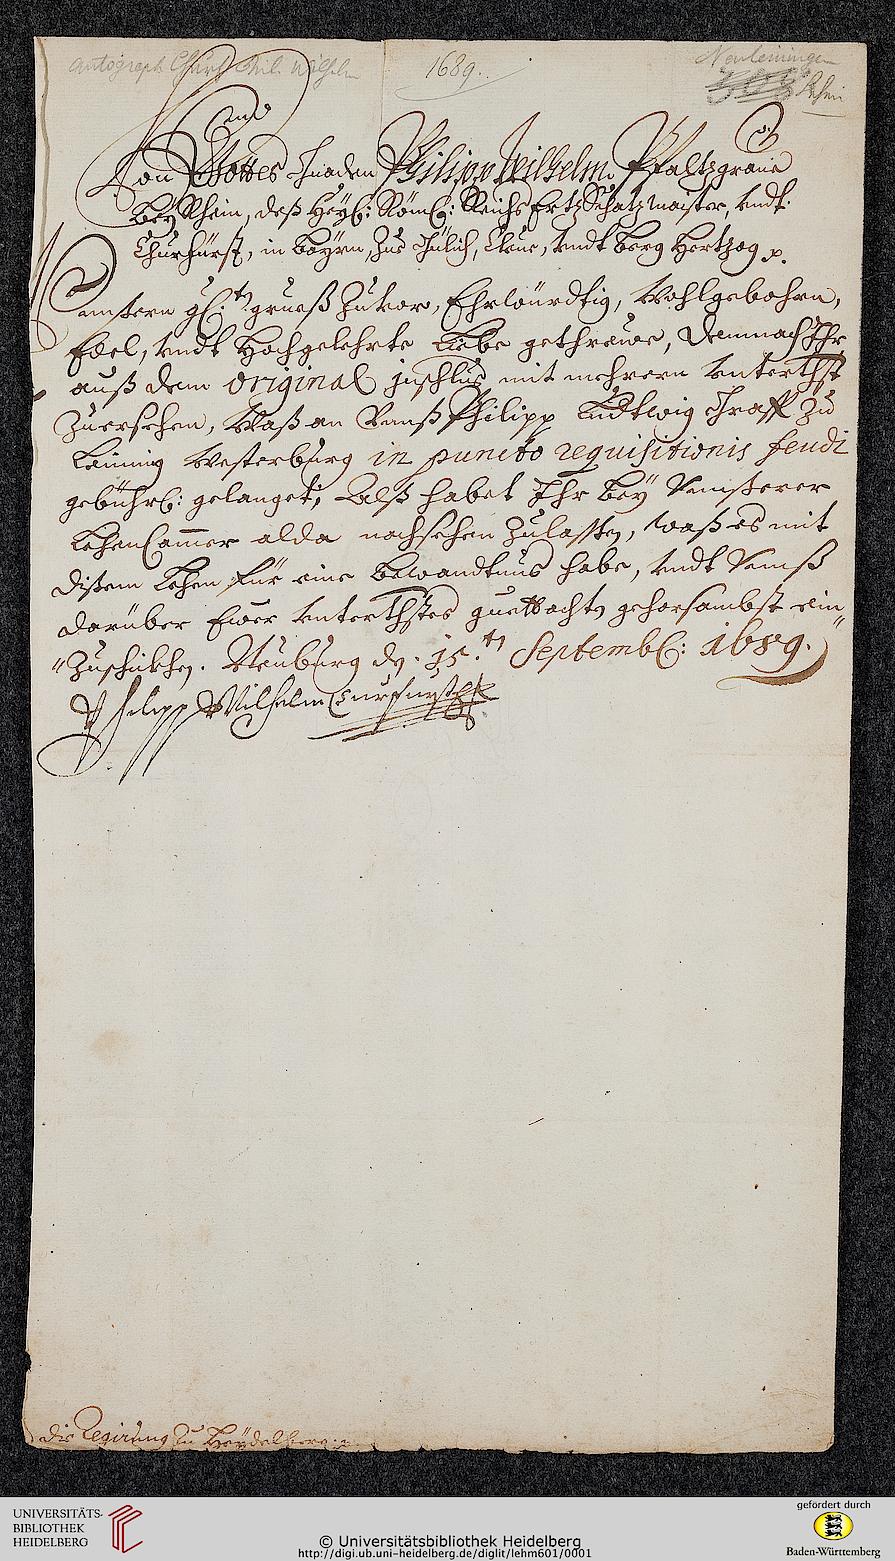 Autograph Churf. Phil. Wilhelm
1689.
Neuleiningen
Von Gottes Gnaden Philipp Wilhelm Pfaltzgraue
Bey Rhein, deß Heyl: Röm: Reichs ErtzSchatzmaister, vndt
Churfürst, in Bayrn, Zue Gülich, Cleue, vndt Berg Hertzog p.
Vnnsern gl: grueß Zuuor, Ehrwürdtig, Wohlgebohrn,
Edel, vndt Hochgelehrte Liebe gethreuwe, Demnach Ihr
auß dem original jnschlus mit mehrern vnterthst
Zuersehen, Waß an Vnnß Philipp Ludtwig Graff Zu
Leining Westerburg in puncto requisitionis feudi
gebührl: gelanget; Alß habet Ihr bey Vnnßerer
LehenCammer alda nachsehen Zulassen, waß es mit
dißem Lehen für eine Bewandtnus habe, vndt Vnnß
darüber Ewer vnterthstes guettachten gehorsambst ein„
„Zuschikhen. Neuburg den 15.ten Septembl: 1689.
Philipp Wilhelm Curfurst
die Regirung zu Heydelberg.
UNIVERSITÄTS-
BIBLIOTHEK
HEIDELBERG
© Universitätsbibliothek Heidelberg
http://digi.ub.uni-heidelberg.de/diglit/lehm601/0001
gefördert durch
Baden-Württemberg